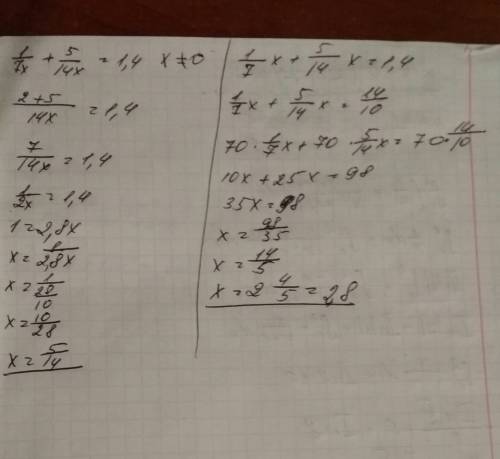 1/7x + 5/14x = 1,4 x ≠ 0
2+5/14x = 1,4
7/14x = 1,4
1/2x = 1,4
1 = 2,8x
x = 1/2,8x
x = 1/28/10
x = 10/28
x = 5/14
1/7 x + 5/14 x = 1,4
1/7 x + 5/14 x = 14/10
70 · 1/7 x + 70 · 5/14 x = 70 · 14/10
10x + 25x = 98
35x = 98
x = 98/35
x = 14/5
x = 2 4/5 = 2,8